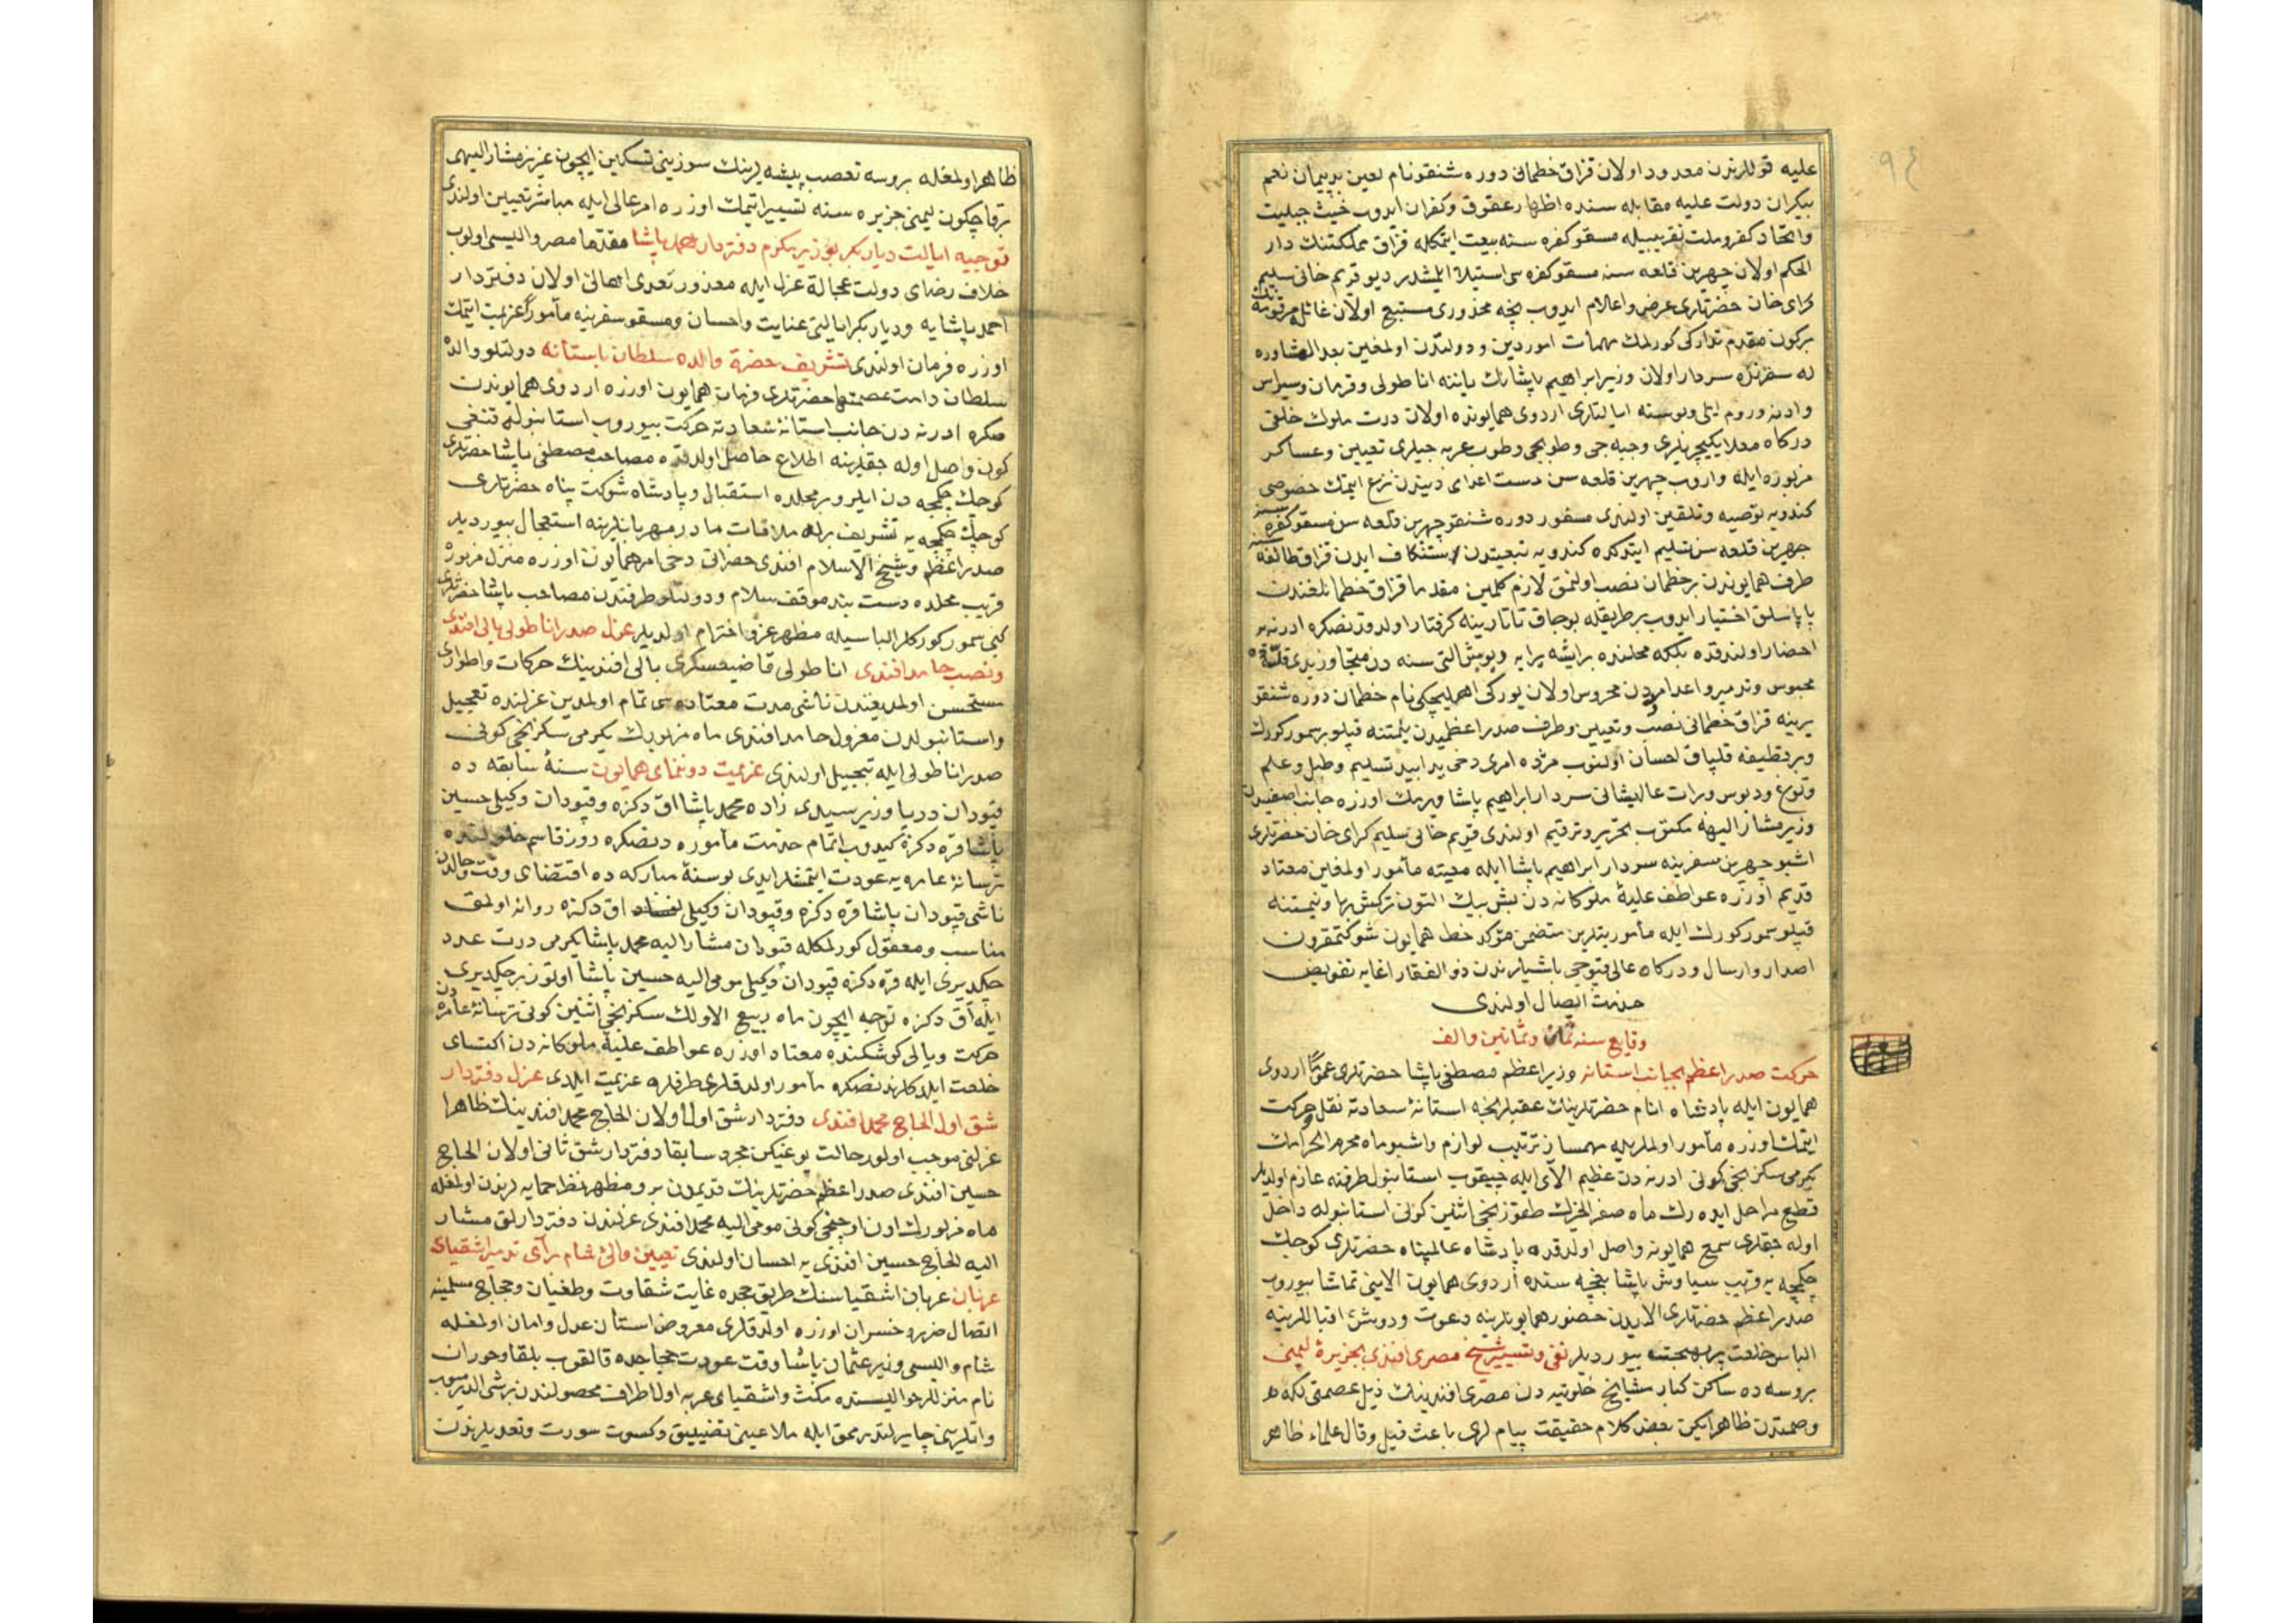 عليه قوللرندن معدود اولان قزاق خطمانی دوره شنقو نام لعين بدپيمان نعم
بيكران دولت عليه مقابله سنده اظهار عقوق و كفران ايدوب خبث جبليت
و اتحاد كفر و ملت تقريبيله مسقو كفره سنه بيعت ايتمكله قزاق مملكتنك دار
الحكم اولان چهرين قلعه سنه مسقو كفره سی استيلا ايلمشدر ديو قريم خانی سليم
كرای خان حضرتلری عرض و اعلام ايدوب نيجه محذوری مستتبع اولان غائله مرقومه نك
بركون مقدم تداركی كورلمك مهمات امور دين و دولتدن اولمغين بعد المشاوره
له سفرنده سردار اولان وزير ابراهيم پاشانك ياننه اناطولی و قرمان و سيواس
و ادنه و روم ايلی و بوسنه ايالتلری اردوی همايونده اولان درت بلوك خلقی
دركاه معلا يكيچريلری و جبه جی و طوبجی و طوب عربه جيلری تعيين و عساكر
مزبوره ايله واروب چهرين قلعه سن دست اعدای دينندن نزع ايتمك خصوصی
كندويه توصيه و تلقين اولندی مسفور دوره شنقو چهرين قلعه سن مسقو كفره سنه
چهرين قلعه سن تسليم ايتدكده كندويه تبعيتدن استنكاف ايدن قزاق طائفه سنه
طرف همايوندن بر خطمان نصب اولنمق لازم كلمين مقدما قزاق خطمانلغندن
پاپاسلق اختيار ايدوب بر طريقله بوجاق تاتارينه كرفتار اولدقدنصكره ادرنه يه
احضار اولندقده يكيكه محلنده برايشه يرايه ديو بش التی سنه دن متجاوز يدی قله ده
محبوس و تدمير و اعدامدن محروس اولان يوركی اهمليچكی نام خطمان دوره شنقو
يرينه قزاق خطمانی نصب و تعيين و طرف صدر اعظميدن ينمتنه قپلو بر سمور كورك
و بر قطيفه قلپاق احسان اولنوب مژده امری دخی يدابيد تسليم و طبل و علم
و توغ و دبوس و برات عاليشانی سردار ابراهيم پاشا ويرمك اوزره جانب اصفيدن
وزير مشار اليهه مكتوب تحرير و ترقيم اولندی قريم خانی سليم كرای خان حضرتلری
اشبو چهرين سفرينه سردار ابراهيم پاشا ايله معيته مأمور اولمغين معتاد
قديم اوزره عواطف عليۀ ملوكانه دن بش بيك التون تركش بها و نيمتنه
قپلو سمور كورك ايله مأموريتلرين متضمن مؤكد خط همايون شوكتمقرون
اصدار و ارسال و دركاه عالی قپوجی باشيلرندن ذو الفقار اغايه تفويض
خدمت ايصال اولندی
وقايع سنه ثمان و ثمانين و الف
حركت صدر اعظم بجانب استانه وزير اعظم مصطفی پاشا حضرتلری عموما اردوی
همايون ايله پادشاه انام حضرتلرينك عقبلرنجه استانۀ سعادته نقل و حركت
ايتمك اوزره مأمور اولملريله مهمساز ترتيب لوازم و اشبو ماه محرم الحرامك
يكرمی سكزنجی كونی ادرنه دن عظيم الای ايله چيقوب استانبول طرفنه عازم اولديلر
قطع مراحل ايده رك ماه صفر الخيرك طقوزنجی اثنين كونی استانبوله داخل
اوله جقلری سمع همايونه واصل اولدقده پادشاه عالمپناه حضرتلری كوچك
چكمجه يه قريب سياوش پاشا بغچه سنده اردوی همايون الاينی تماشا بيوروب
صدر اعظم حضرتلری الايدن حضور همايونلرينه دعوت و دوش اقباللرينه
الباس خلعت پر بهجت بيورديلر نفی و تسيير شيخ مصری افندی بجزيرۀ ليمنی
بروسه ده ساكن كبار مشايخ خلوتيه دن مصری افندينك ذيل عصمتی لكه دن
و صمتدن ظاهر ايكن بعض كلام حقيقت پيام لری باعث قيل و قال علماء ظاهر
ظاهر اولمغله بروسه تعصب پيشه لرينك سوزينی تسكين ايچون عزيز مشار اليهی
برقاچ كون ليمنی جزيره سنه تسيير اتيمك اوزره امر عالی ايله مباشر تعيين اولندی
توجيه ايالت ديار بكر بوزير مكرم دفتردار احمد پاشا مقدما مصر واليسی اولوب
خلاف رضای دولت عجالة عزل ايله مغدور تعدی اهالی اولان دفتردار
احمد پاشايه و ديار بكر ايالتی عنايت و احسان و مسقو سفرينه مأمورا عزيمت ايتمك
اوزره فرمان اولندی تشريف حضرة والده سلطان باستانه دولتلو والده
سلطان دامت عصمتها حضرتلری فرمان همايون اوزره اردوی همايوندن
صكره ادرنه دن جانب استانۀ سعادته حركت بيوروب استانبوله قنغی
كون واصل اوله جقلرينه اطلاع حاصل اولدقده مصاحب مصطفی پاشا حضرتلری
كوچك چكمجه دن ايلرو بر محلده استقبال و پادشاه شوكت پناه حضرتلری
كوچك چكمجه يه تشريف برله ملاقات مادر مهربانلرينه استعجال بيورديلر
صدر اعظم و شيخ الاسلام افندی حضراتی دخی امر همايون اوزره منزل مزبوره
قريب محلده دست بند موقف سلام و دولتلو طرفندن مصاحب پاشا حضرتلری
كبی سمور كوركلر الباسيله مظهر عز و احترام اولديلر عزل صدر اناطولی بالی افندی
و نصب حامد افندی اناطولی قاضيعسكری بالی افندينك حركات و اطواری
مستحسن اولمديغندن ناشی مدت معتاده سی تمام اولمدين عزلنده تعجيل
و استانبولدن معزول حامد افندی ماه مزبورك يكرمی سكزنجی كونی
صدر اناطولی ايله تبجيل اولندی عزيمت دوننمای همايون سنۀ سابقه ده
قپودان دريا وزير سيدی زاده محمد پاشا اق دكزه و قپودان وكيلی حسين
پاشا قره دكزه كيدوب اتمام خدمت مأموره دنصكره روز قاسم خلولنده
ترسانۀ عامره يه عودت ايتمشلر ايدی بو سنۀ مباركه ده اقتضای وقت و حالدن
ناشی قپودان پاشا قره دكزه و قپودان وكيلی اق دكزه روانه اولمق
مناسب و معقول كورلمكله قپودان مشار اليه محمد پاشا يكرمی درت عدد
چكديری ايله قره دكزه قپودان وكيلی مومی اليه حسين پاشا اوتوز بر چكديری
ايله اق دكزه توجه ايچون ماه ربيع الاولك سكزنجی اثنين كونی ترسانۀ عامره دن
حركت و يالی كوشكنده معتاد اوزره عواطف عليۀ ملوكانه دن اكتسای
خلعت ايلدكلرندنصكره مأمور اولدقلری طرفلره عزيمت ايلدی عزل دفتردار
شق اول الحاج محمد افندی دفتردار شق اول اولان الحاج محمد افندينك ظاهرا
عزلنی موجب اولور حالت يوغيكن مجرد سابقا دفتردار شق ثانی اولان الحاج
حسين افندی صدر اعظم حضرتلرينك قديمدن برو مظهر نظر حمايه لرندن اولمغله
ماه مزبورك اون اوچنجی كونی مومی اليه محمد افندی عزلندن دفتردارلق مشار
اليه الحاج حسين افندی يه احسان اولندی تعيين والئ شام برآی تدمير اشقيای
عربان عربان اشقياسنك طريق حجده غايت شقاوت و طغيان و حجاج مسلمينه
اتصال ضرر و خسران اوزره اولدقلری معروض استان عدل و امان اولمغله
شام واليسی وزير عثمان پاشا وقت عودت حجاجده قالقوب بلقا و حوران
نام منزللر حواليسنده مكث و اشقيای عربه اول اطرافك محصولندن برشی الديرميوب
و اتلرينی چايرلتديرمق ايله ملاعينی تضييق و كسوت سورت و تعديلرندن